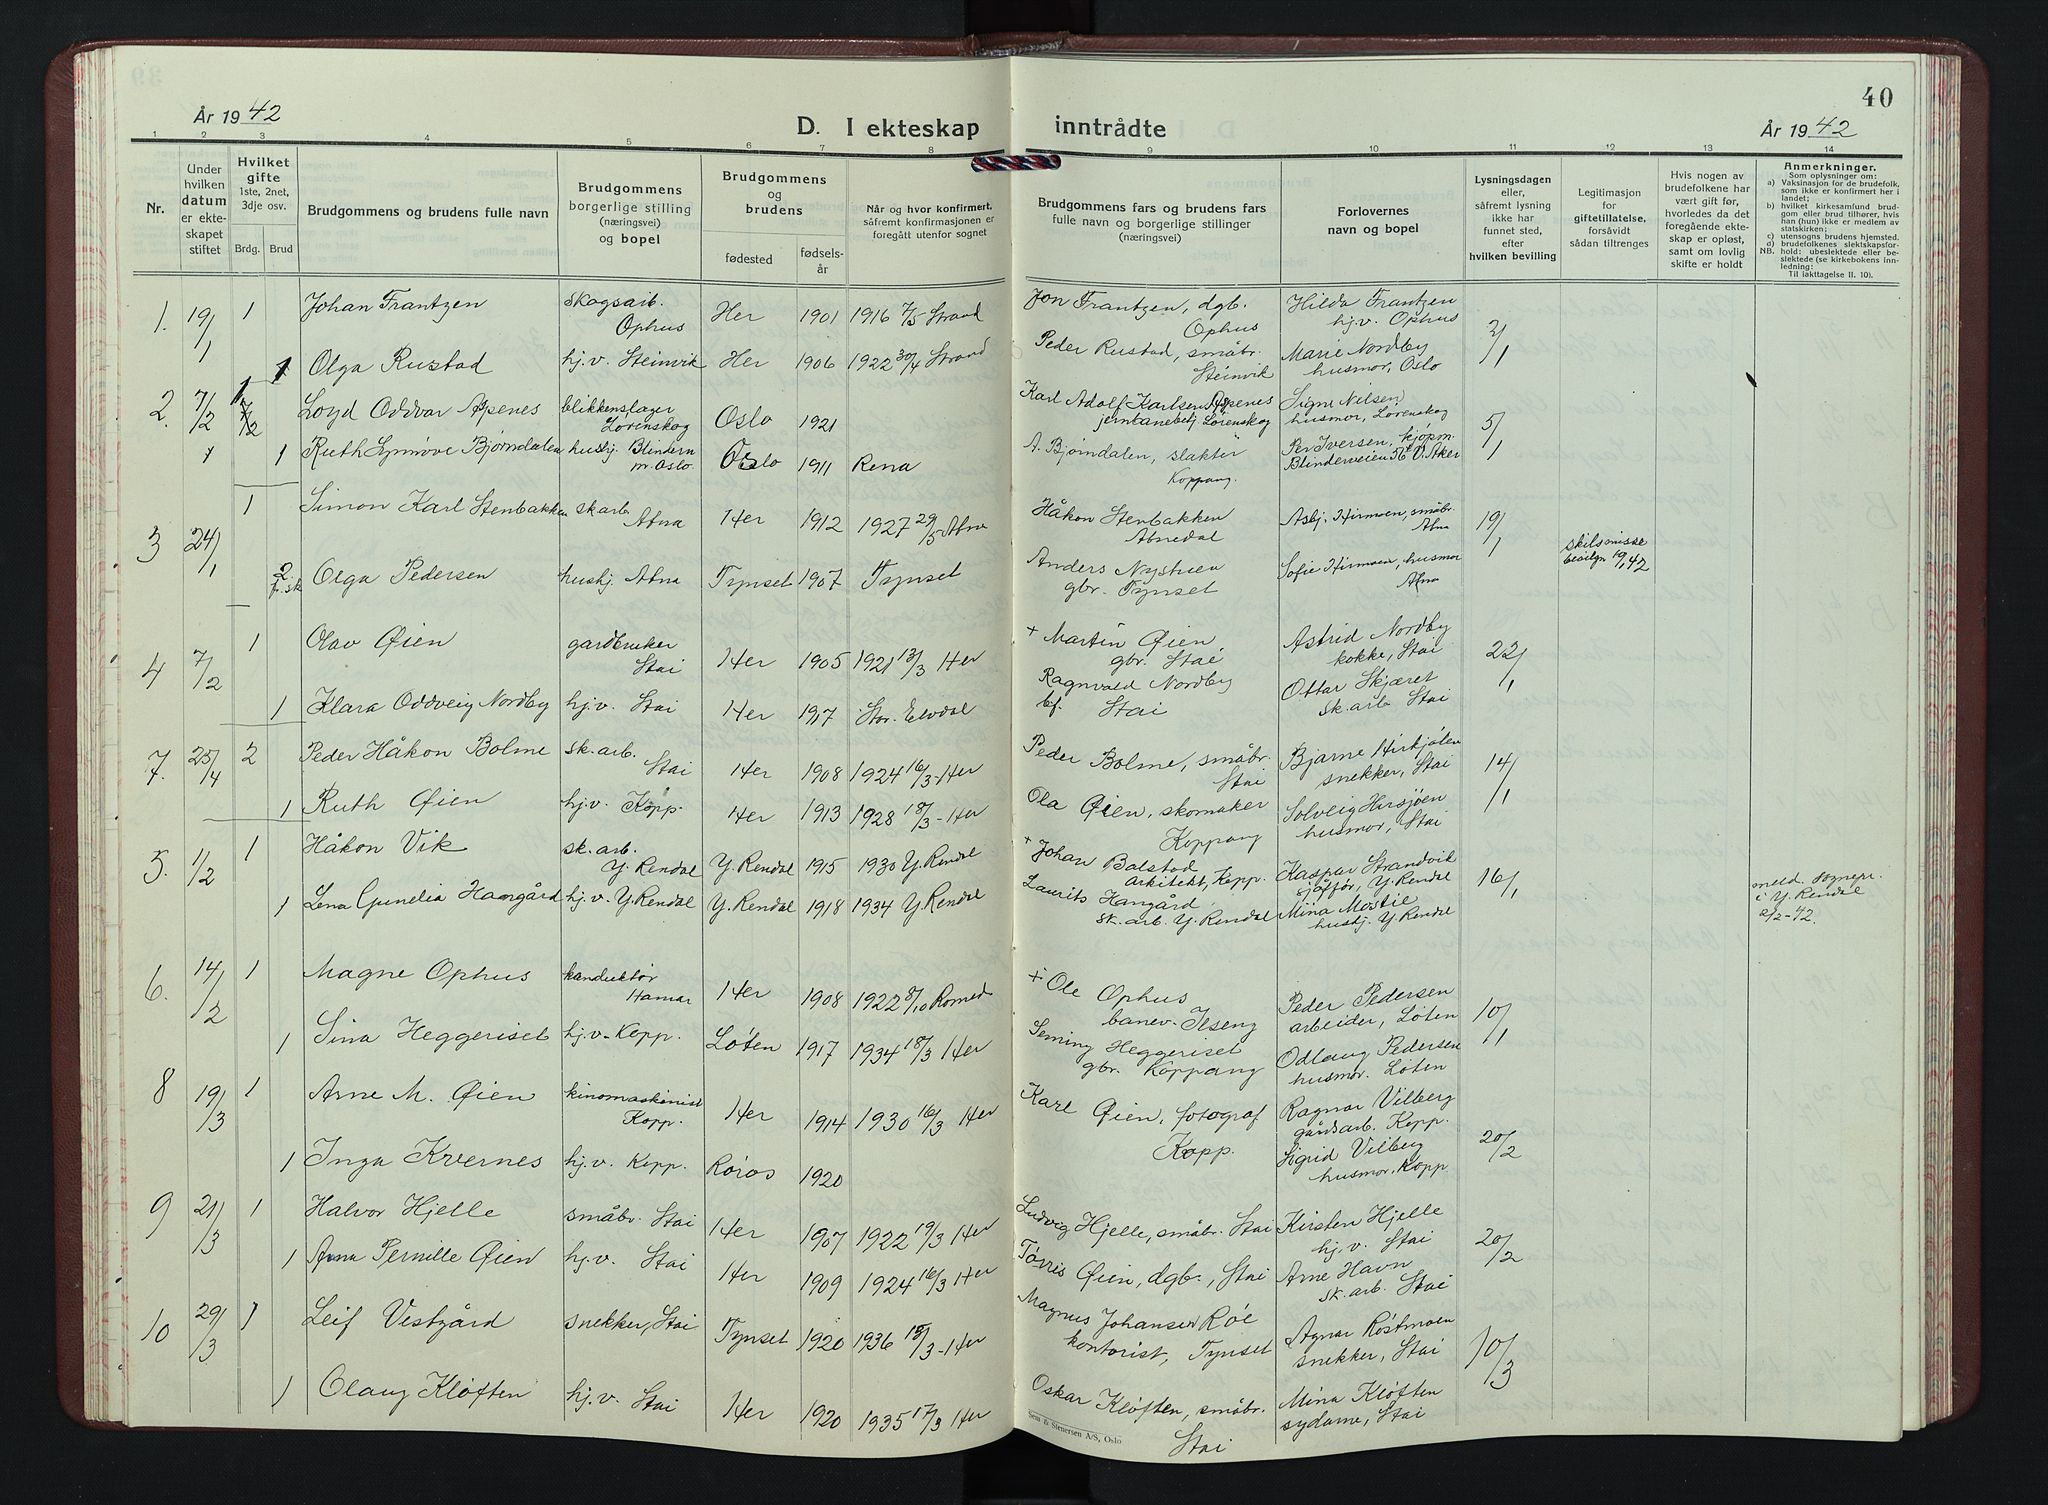 År 1942
D. I ekteskap inntrådte
40
År 1942
1 2 3 4 5 6 7 8 9 10 11 12 13 14
Nr.
Under hvilken datum er ekteskapet stiftet
Hvilket gifte 1ste, 2net, 3dje osv.
Brdg. Brud
Brudgommens og brudens fulle navn
Brudgommens borgerlige stilling (næringsvei) og bopel
Brudgommens og brudens
fødested
fødselsår
Når og hvor konfirmert, såfremt konfirmasjonen er foregått utenfor sognet
Brudgommens fars og brudens fars fulle navn og borgerlige stillinger (næringsvei)
Forlovernes navn og bopel
Lysningsdagen eller, såfremt lysning ikke har funnet sted, efter hvilken bevilling
Legitimasjon for giftetillatelse, forsåvidt sådan tiltrenges
Hvis nogen av brudefolkene har vært gift før, hvorledes da det foregående ekteskap er opløst, samt om lovlig skifte er holdt
Anmerkninger.
Som oplysninger om:
a) Vaksinasjon for de brudefolk, som ikke er konfirmert her i landet;
b) hvilket kirkesamfund brudgom eller brud tilhører, hvis han (hun) ikke er medlem av statskirken;
c) utensogns brudens hjemsted.
d) brudefolkenes slektskapsforhold: ubeslektede eller beslektede (se kirkebokens innledning:
NB. Til iakttagelse II. 10).
1. 19/1 1 Johan Frantzen skogsarb. Ophus Her 1901 1916 7/5 Strand Jon Frantzen, dgb. Ophus Hilda Frantzen hj.v. Ophus 2/1
1 Olga Rustad hj.v. Steinvik Her 1906 1922 30/4 Strand Peder Rustad, småbr. Steinvik Marie Nordby husmor, Oslo
2. 7/2 1 Loyd Oddvar Aspenes blikkenslager Lørenskog Oslo 1921 Karl Adolf Karlsen Aspenes Lørenskog Signe Nilsen husmor, Lørenskog 5/1
1 Ruth Synnøve Bjørndalen hushj. Blindern Oslo Oslo 1911 Rena A. Bjørndalen, slakter Koppang. Per Iversen, kjøpm. Blindernveien V. Aker
3 24/1 1 Simon Karl Stenbakken sk.arb. Atna Her 1912 1927 29/5 Atna Håkon Stenbakken Atnedal Asbj. Hirmoen, småbr. Atna 19/1
2 f.sk Olga Pedersen hushj. Atna Tynset 1907 Tynset Anders Nystuen gbr. Tynset Sofie Hirmoen, husmor Atna skilsmisse bevilgn 19/1 42
4 7/2 1 Olav Øien gardbruker Stai Her 1905 1921 13/3 Her + Martin Øien gbr. Stai Astrid Nordby kokke, Stai 22/1
1 Klara Oddveig Nordby hj.v. Stai Her 1917 Stor-Elvdal Ragnvald Nordby bf. Stai Ottar Skjæret sk.arb Stai
7. 25/4 2 Peder Håkon Bolme sk.arb. Stai Her 1908 1924 16/3-Her Peder Bolme, småbr. Stai Bjarne Hirkjølen snekker, Stai 14/1
1 Ruth Øien hj.v. Kopp. Her 1913 1928 18/3-Her Ola Øien, skomaker Koppang Solveig Hirsjøen husmor, Stai
5. 1/2 1 Håkon Vik sk.arb. Y. Rendal Y. Rendal 1915 1930 Y. Rendal + Johan Balstad arkitekt, Kopp. Kaspar Strandvik sjåfør, Y. Rendal 16/1
1 Lena Gunelia Hangård hj.v. Y. Rendal Y. Rendal 1918 1934 Y. Rendal Laurits Hangård sk.arb. Y. Rendal Mina Mostie hushj. Y. Rendal meld. sognepr. i Y. Rendal 2/2-42.
6. 14/2 1 Magne Ophus konduktør Hamar Her 1908 1922 8/10 Romed + Ole Ophus banev. Ilseng Peder Pedersen arbeider, Løten 10/1
1 Sina Heggeriset hj.v. Kopp. Løten 1917 1934 18/3 Her Seming Heggeriset gbr. Koppang Odlaug Pedersen husmor. Løten
8 19/3 1 Arne M. Øien kinomaskinist Kopp. Her 1914 1930 16/3 Her Karl Øien, fotograf Kopp. Ragnar Vilberg gårdsarb. Kopp. 20/2
1 Inga Kvernes hj.v. Kopp. Røros 1920 Sigrid Vilberg husmor. Kopp.
9 21/3 1 Halvor Hjelle småbr. Stai Her 1907 1922 19/3 Her Ludvig Hjelle, småbr. Stai Kirsten Hjelle hj.v. Stai 20/2
1 Anna Pernille Øien hj.v. Stai Her 1909 1924 16/3 Her Tørris Øien, dgb., Stai Arne Havn sk.arb. Stai
10 29/3 1 Leif Vestgård snekker, Stai Tynset 1920 1936 15/3-Her Magnus Johansen Røe kontorist, Tynset Agnar Røstmoen snekker, Stai 10/3
1 Olaug Kløften hj.v. Stai Her 1920 1935 17/3 Her Oskar Kløften, småbr. Stai Mina Kløften sydame, Stai
Sem & Stenersen A/S, Oslo